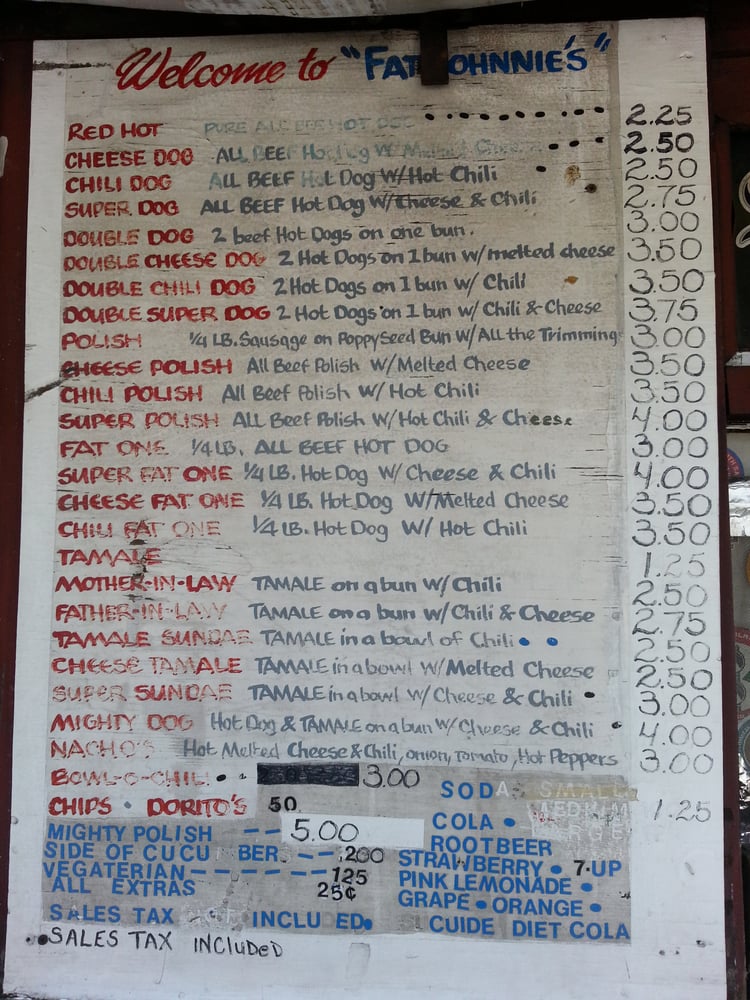 Welcome to "FAT JOHNNIE'S"
RED HOT PURE ALL BEEF HOT DOG 2.25
CHEESE DOG ALL BEEF Hot Dog W/ Melted Cheese 2.50
CHILI DOG ALL BEEF Hot Dog W/Hot Chili 2.50
SUPER DOG ALL BEEF Hot Dog W/Cheese & Chili 2.75
DOUBLE DOG 2 beef Hot Dogs on one bun. 3.00
DOUBLE CHEESE DOG 2 Hot Dogs on 1 bun w/melted cheese 3.50
DOUBLE CHILI DOG 2 Hot Dogs on 1 bun w/ Chili 3.50
DOUBLE SUPER DOG 2 Hot Dogs on 1 bun w/ Chili & Cheese 3.75
POLISH 1/4 LB. Sausage on PoppySeed Bun W/All the Trimming 3.00
CHEESE POLISH All Beef Polish W/Melted Cheese 3.50
CHILI POLISH All Beef Polish W/ Hot Chili 3.50
SUPER POLISH ALL Beef Polish W/Hot Chili & Cheese 4.00
FAT ONE 1/4 LB. ALL BEEF HOT DOG 3.00
SUPER FAT ONE 1/4 LB. Hot Dog W/ Cheese & Chili 4.00
CHEESE FAT ONE 1/4 LB. Hot Dog W/Melted Cheese 3.50
CHILI FAT ONE 1/4 LB. Hot Dog W/ Hot Chili 3.50
TAMALE 1.25
MOTHER-IN-LAW TAMALE on a bun W/ Chili 2.50
FATHER-IN-LAW TAMALE on a bun w/Chili & Cheese 2.75
TAMALE SUNDAE TAMALE in a bowl of Chili 2.50
CHEESE TAMALE TAMALE in a bowl W/Melted Cheese 2.50
SUPER SUNDAE TAMALE in a bowl W/ Cheese & Chili 3.00
MIGHTY DOG Hot Dog & TAMALE on a bun W/ Cheese & Chili 4.00
NACHO'S Hot Melted Cheese & Chili, onion, Tomato, Hot Peppers 3.00
BOWL-O-CHILI 3.00
CHIPS • DORITO'S 50
SODA SMALL
MEDIUM 1.25
LARGE
MIGHTY POLISH -- 5.00
SIDE OF CUCU BERS -- 200
VEGATERIAN ------ 125
ALL EXTRAS 25¢
SALES TAX NOT INCLU ED.
COLA •
ROOTBEER
STRAWBERRY • 7-UP
PINK LEMONADE •
GRAPE • ORANGE •
CUIDE DIET COLA
SALES TAX INCLUDED